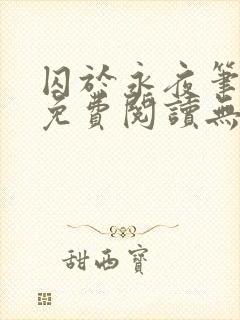 囚於永夜筆
免費閱讀無
甜西寶